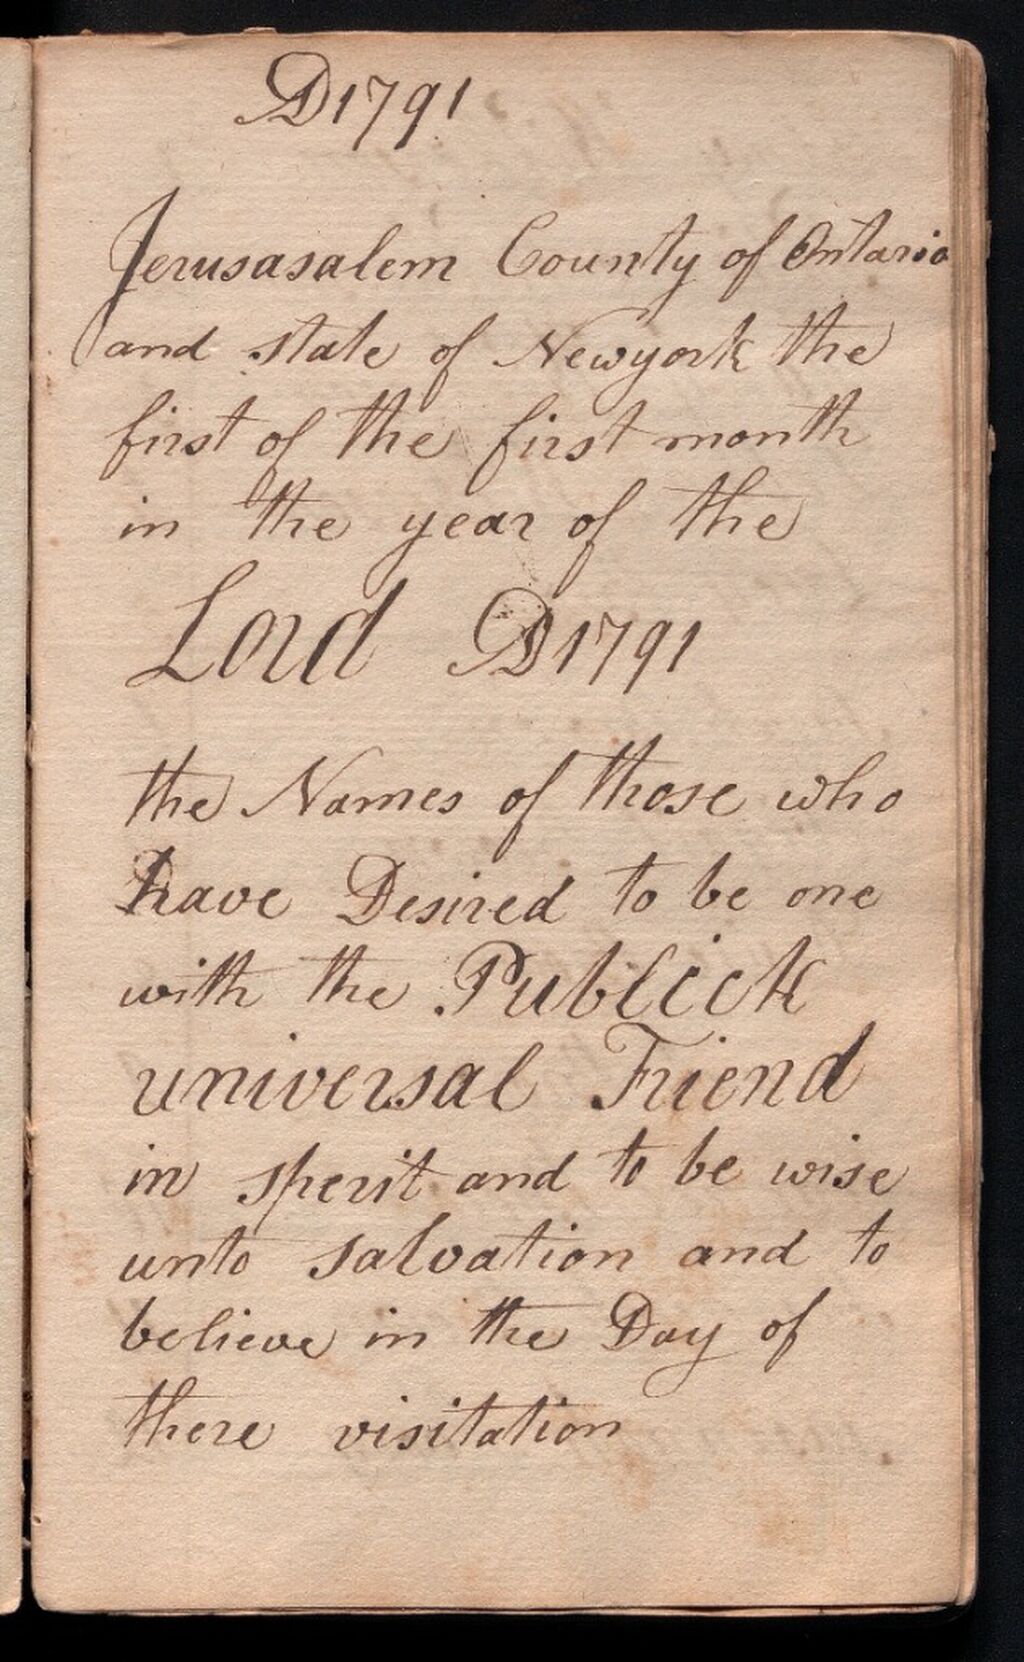 AD 1791
Jerusasalem County of Ontario
and state of Newyork the
first of the first month
in the year of the
Lord AD 1791
the Names of those who
have Desired to be one
with the Publick
universal Friend
in sperit and to be wise
unto salvation and to
believe in the Day of
there visitation